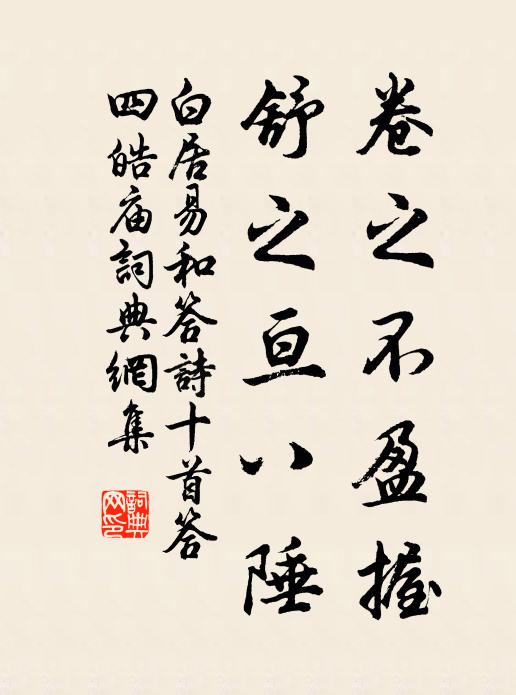 卷之不盈握
舒之亘八陲
白居易和答詩十首答
四皓庙詞典網集
詞典
网印